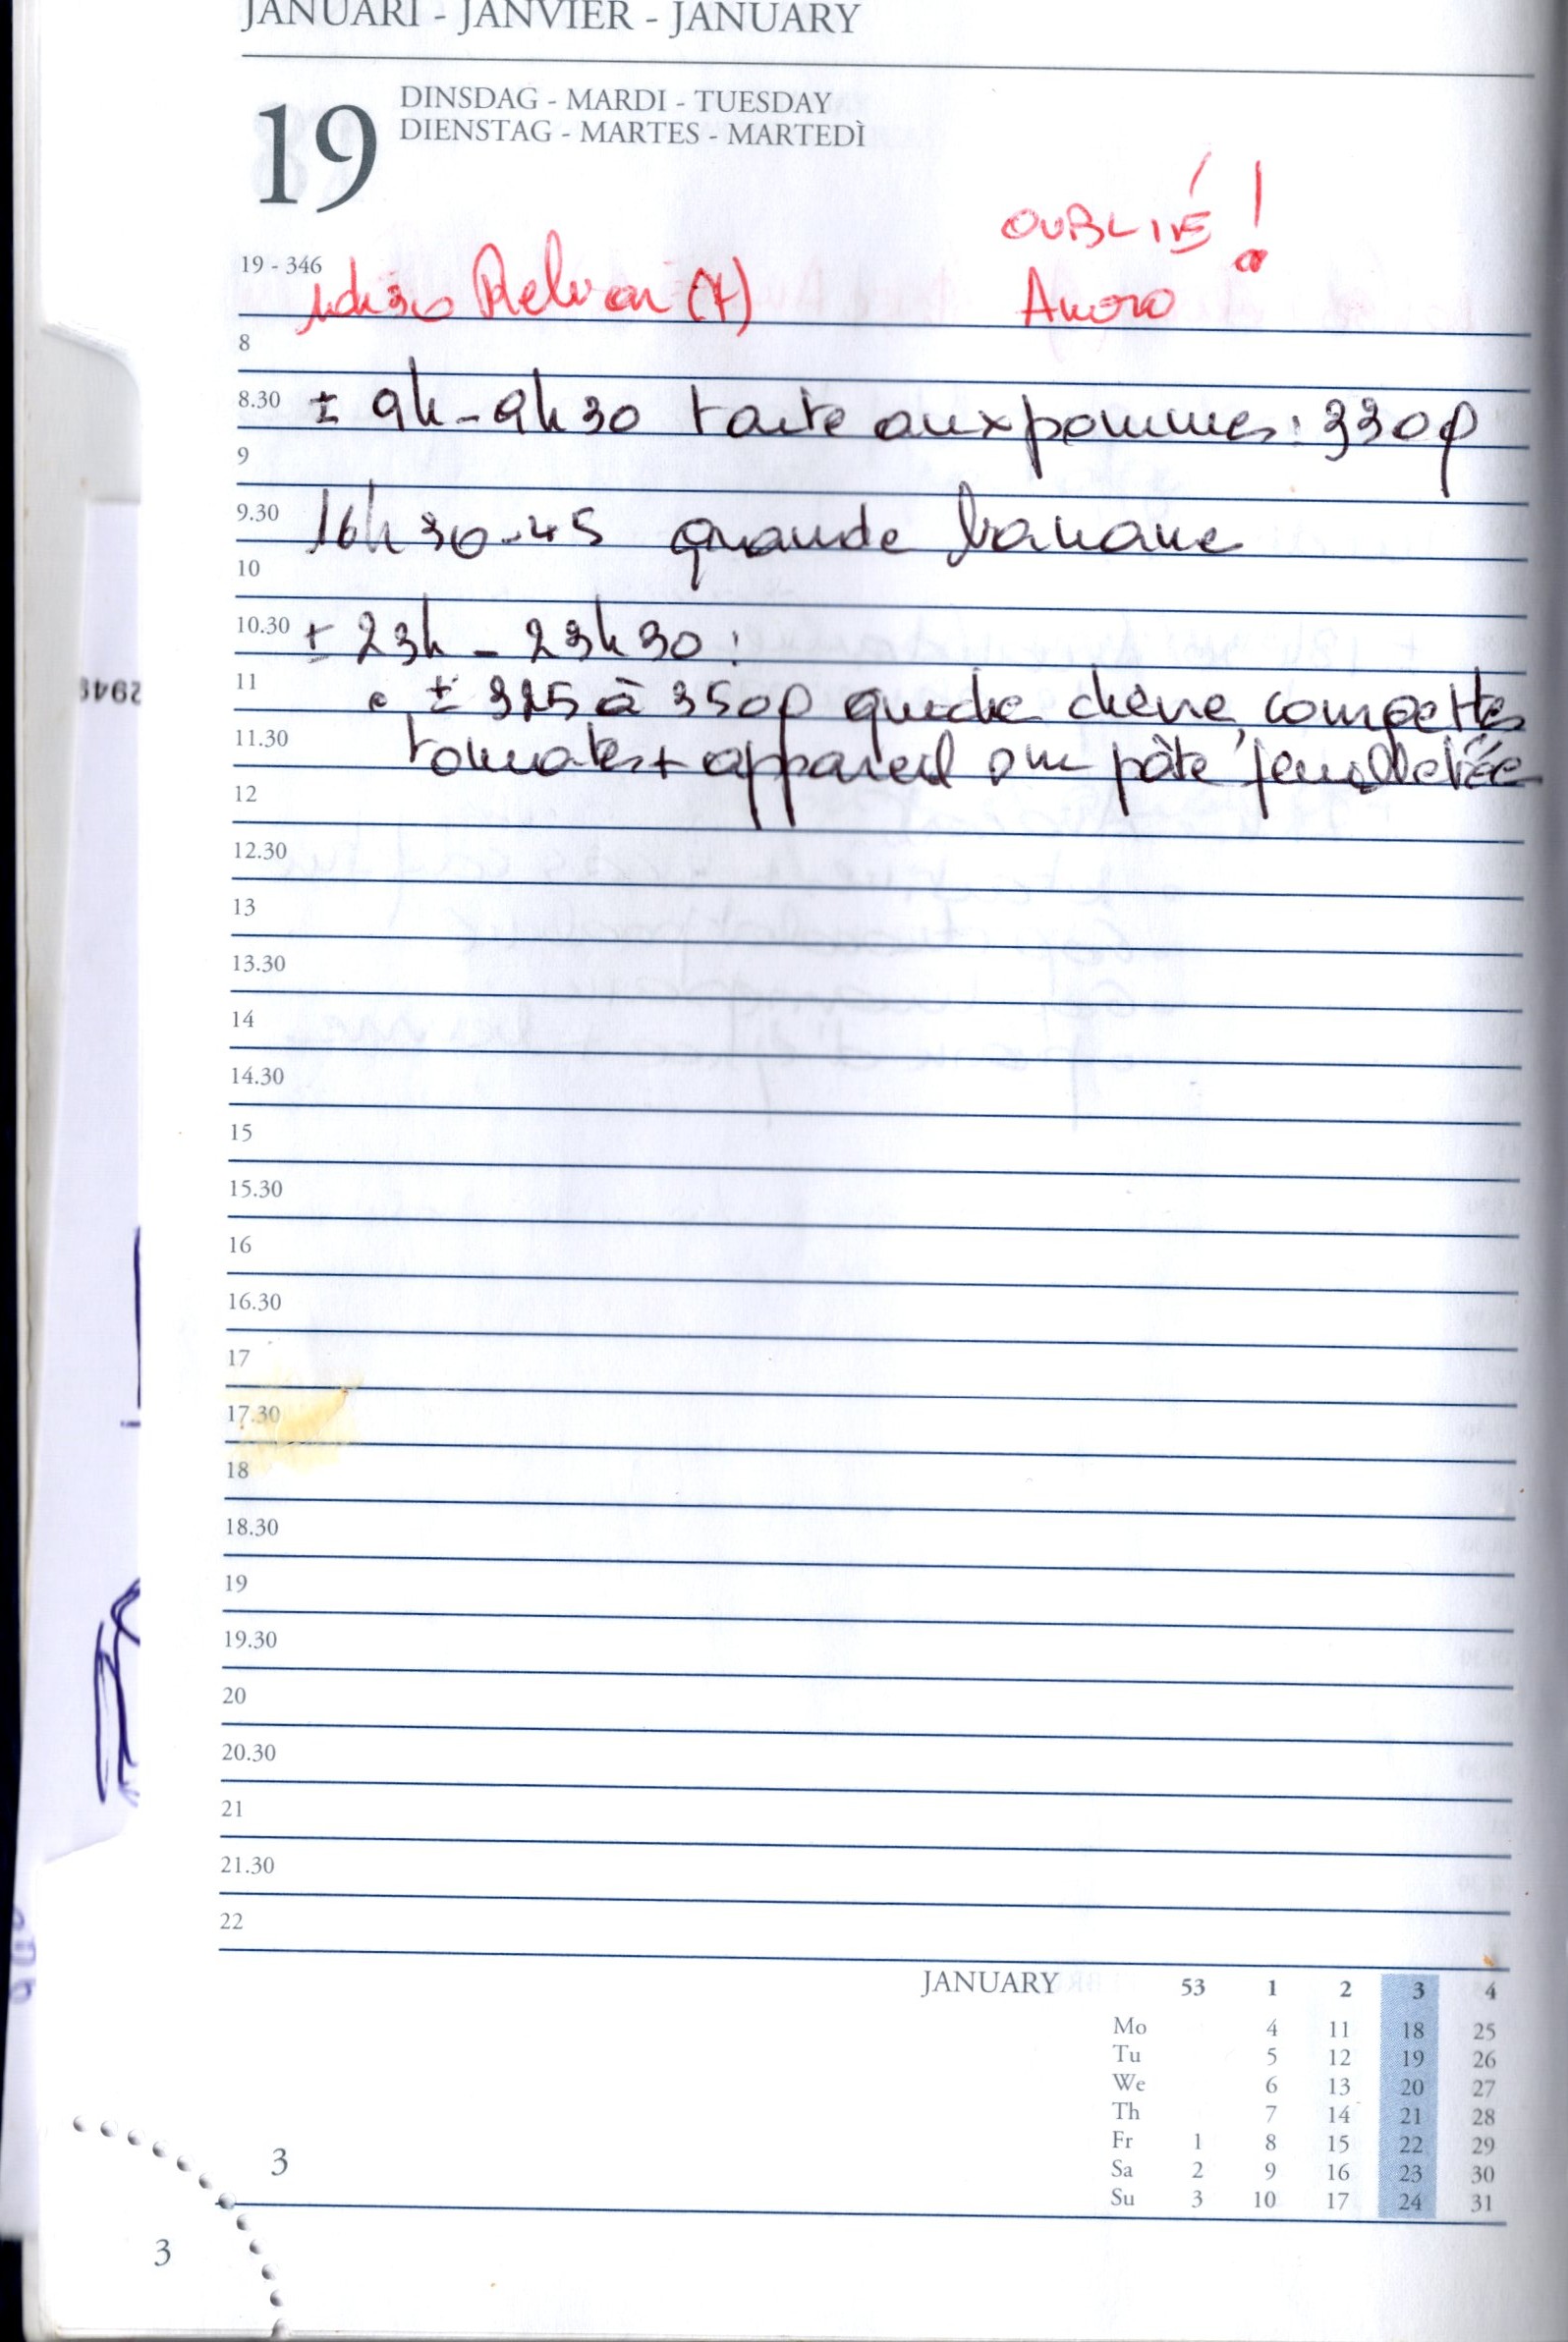 JANUARI - JANVIER - JANUARY
19
DINSDAG - MARDI - TUESDAY
DIENSTAG - MARTES - MARTEDÌ
OUBLIÉ !
19 - 346
(7)
8
8.30 ± 9h-9h30 tarte aux pommes : 330g
9
9.30 16h30-45 grande banane
10
10.30 ± 23h - 23h30 :
11 • ± 325 à 350g quiche chèvre, courgettes
11.30 tomates + appareil sur pâte feuilletée
12
12.30
13
13.30
14
14.30
15
15.30
16
16.30
17
17.30
18
18.30
19
19.30
20
20.30
21
21.30
22
JANUARY 53 1 2 3 4
Mo 4 11 18 25
Tu 5 12 19 26
We 6 13 20 27
Th 7 14 21 28
Fr 1 8 15 22 29
Sa 2 9 16 23 30
Su 3 10 17 24 31
3
3